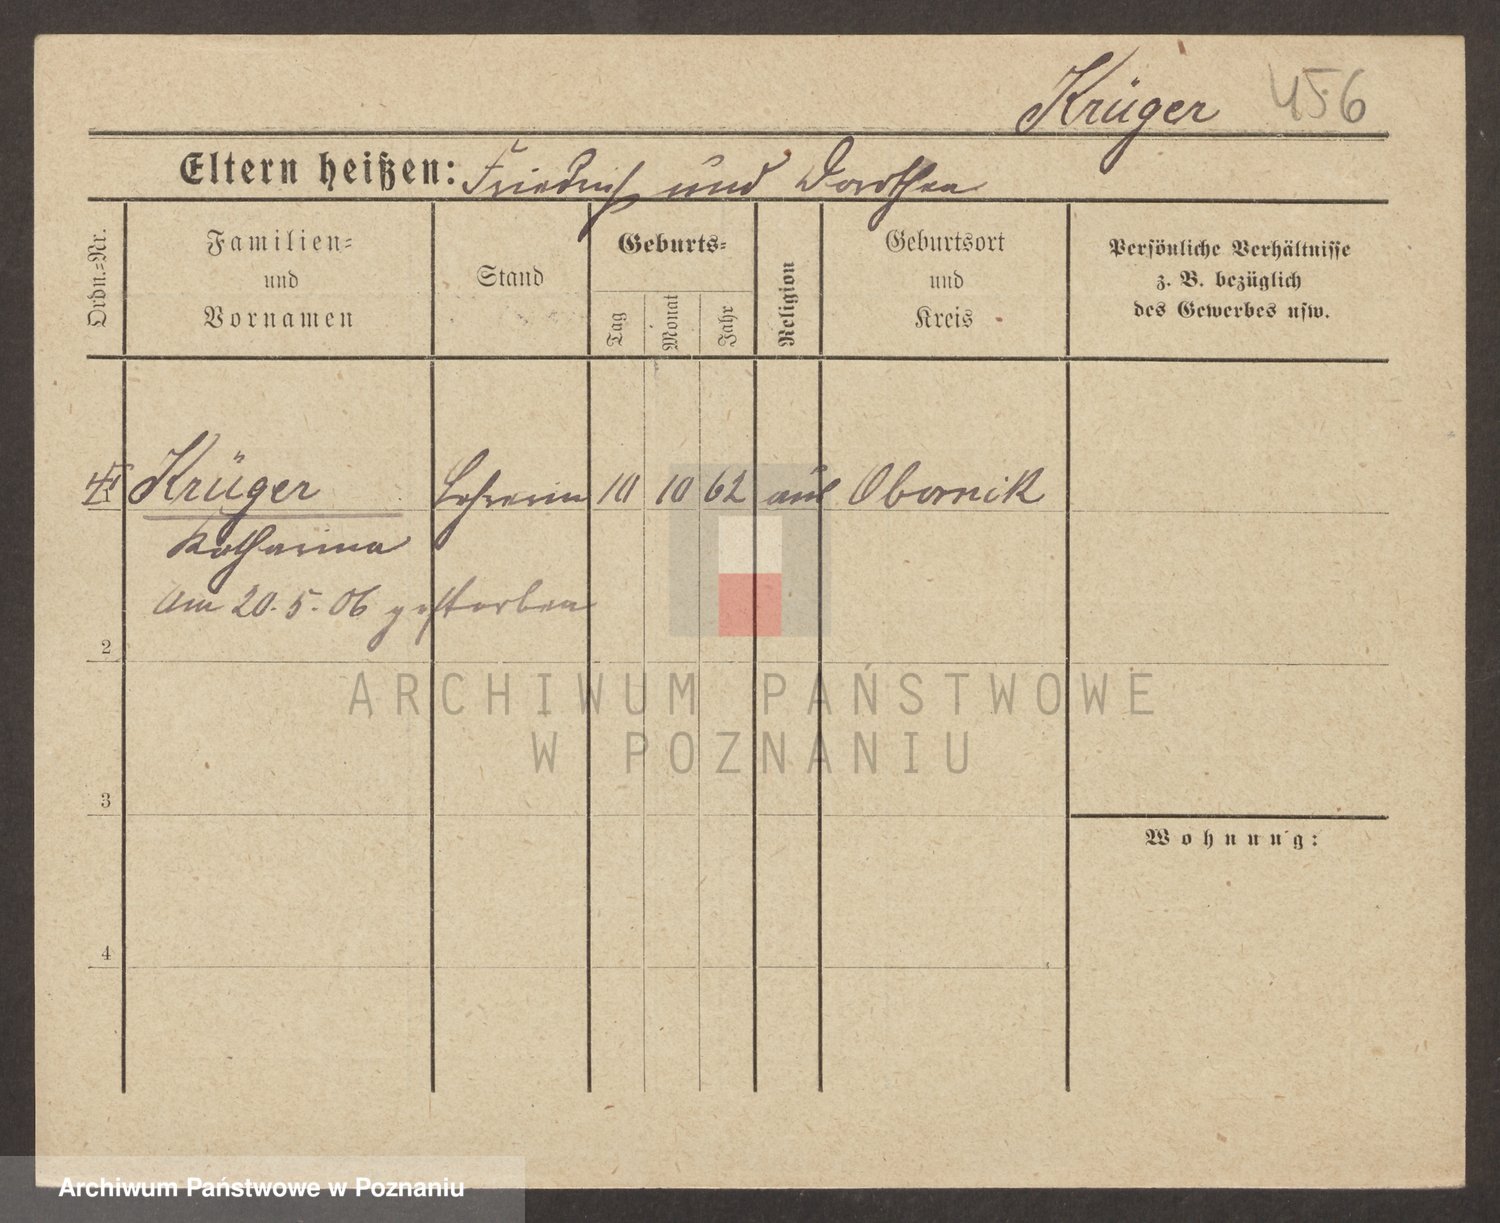 Krüger 456
Eltern heißen: Friedrich und Dorothea
Ordn.=Nr.
Familien=
und
Vornamen
Stand
Geburts=
Tag
Monat
Jahr
Religion
Geburtsort
und
Kreis
Persönliche Verhältnisse
z. B. bezüglich
des Gewerbes usw.
Krüger Lehrerin 10 10 62 Obornik
Katharina
Am 20.5.06 gestorben
2
ARCHIWUM PAŃSTWOWE
W POZNANIU
3
Wohnung:
4
Archiwum Państwowe w Poznaniu